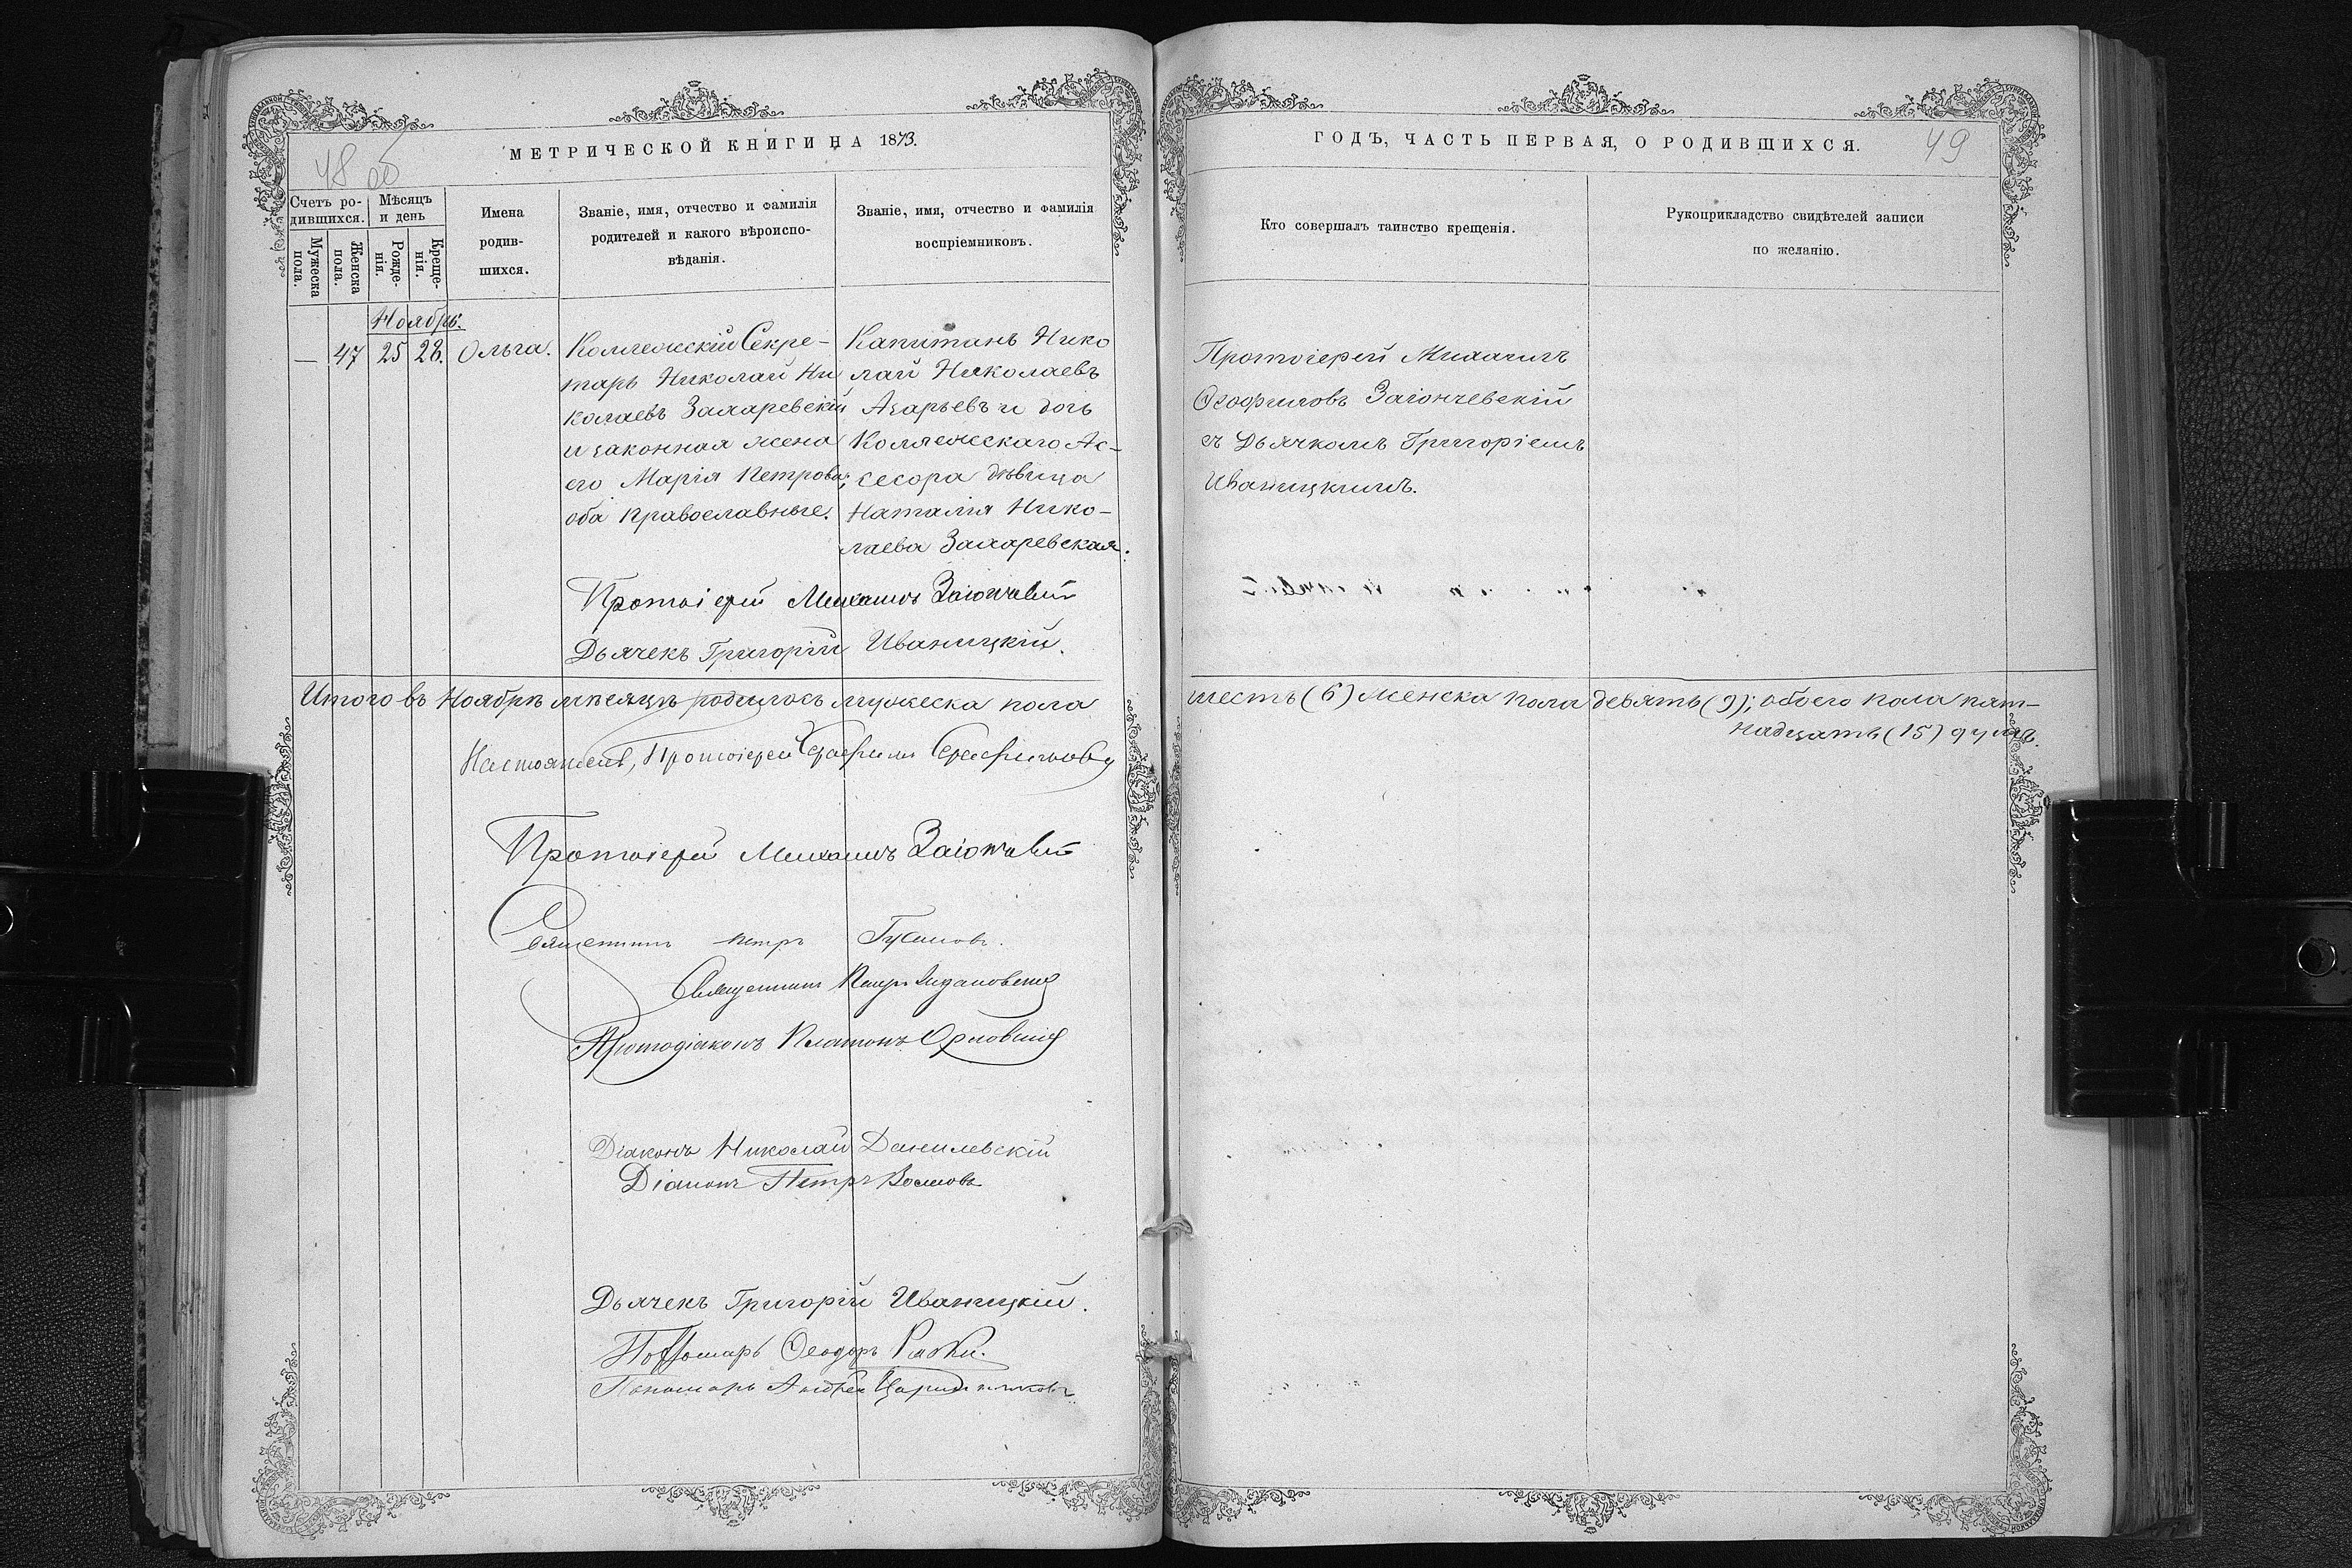 МЕТРИЧЕСКОЙ КНИГИ НА 1873.
48 об
Счетъ ро-
дившихся.
Мѣсяцъ
и день
Мужеска
пола.
Женска
пола.
Рожде-
нія.
Креще-
нія.
Имена
родив-
шихся.
Званіе, имя, отчество и фамилія
родителей и какого вѣроиспо-
вѣданія.
Званіе, имя, отчество и фамилія
воспріемниковъ.
Ноябрь.
— 47 25 28. Ольга.
Коллежскій Секре-
тарь Николай Ни
колаевъ Захаревскій
и законная жена
его Марія Петрова;
оба православные.
Капитанъ Нико
лай Николаевъ
Азарьевъ и дочь
Коллежскаго Ас-
сесора дѣвица
Наталія Нико-
лаева Захаревская.
Протоіерей Михаилъ
Дьячекъ Григорій Иваницкій.
Итого въ Ноябрѣ мѣсяцѣ родилось мужеска пола
Настоятель, Протоіерей Серафимъ Серафимовъ
Протоіерей Михаилъ
Священникъ Петръ
Священникъ Петръ
Протодіаконъ Платонъ Орловскій
Діаконъ Николай Данилевскій
Діаконъ Петръ
Дьячекъ Григорій Иваницкій.
Пономарь Ѳеодоръ
Пономарь Андрей
ГОДЪ, ЧАСТЬ ПЕРВАЯ, О РОДИВШИХСЯ.
49
Кто совершалъ таинство крещенія.
Рукоприкладство свидѣтелей записи
по желанію.
Протоіерей Михаилъ
Ѳеофиловъ Заіончевскій
съ Дьячкомъ Григоріемъ
Иваницкимъ.
шесть (6) женска пола девять (9); обоего пола пят-
надцать (15) душъ.